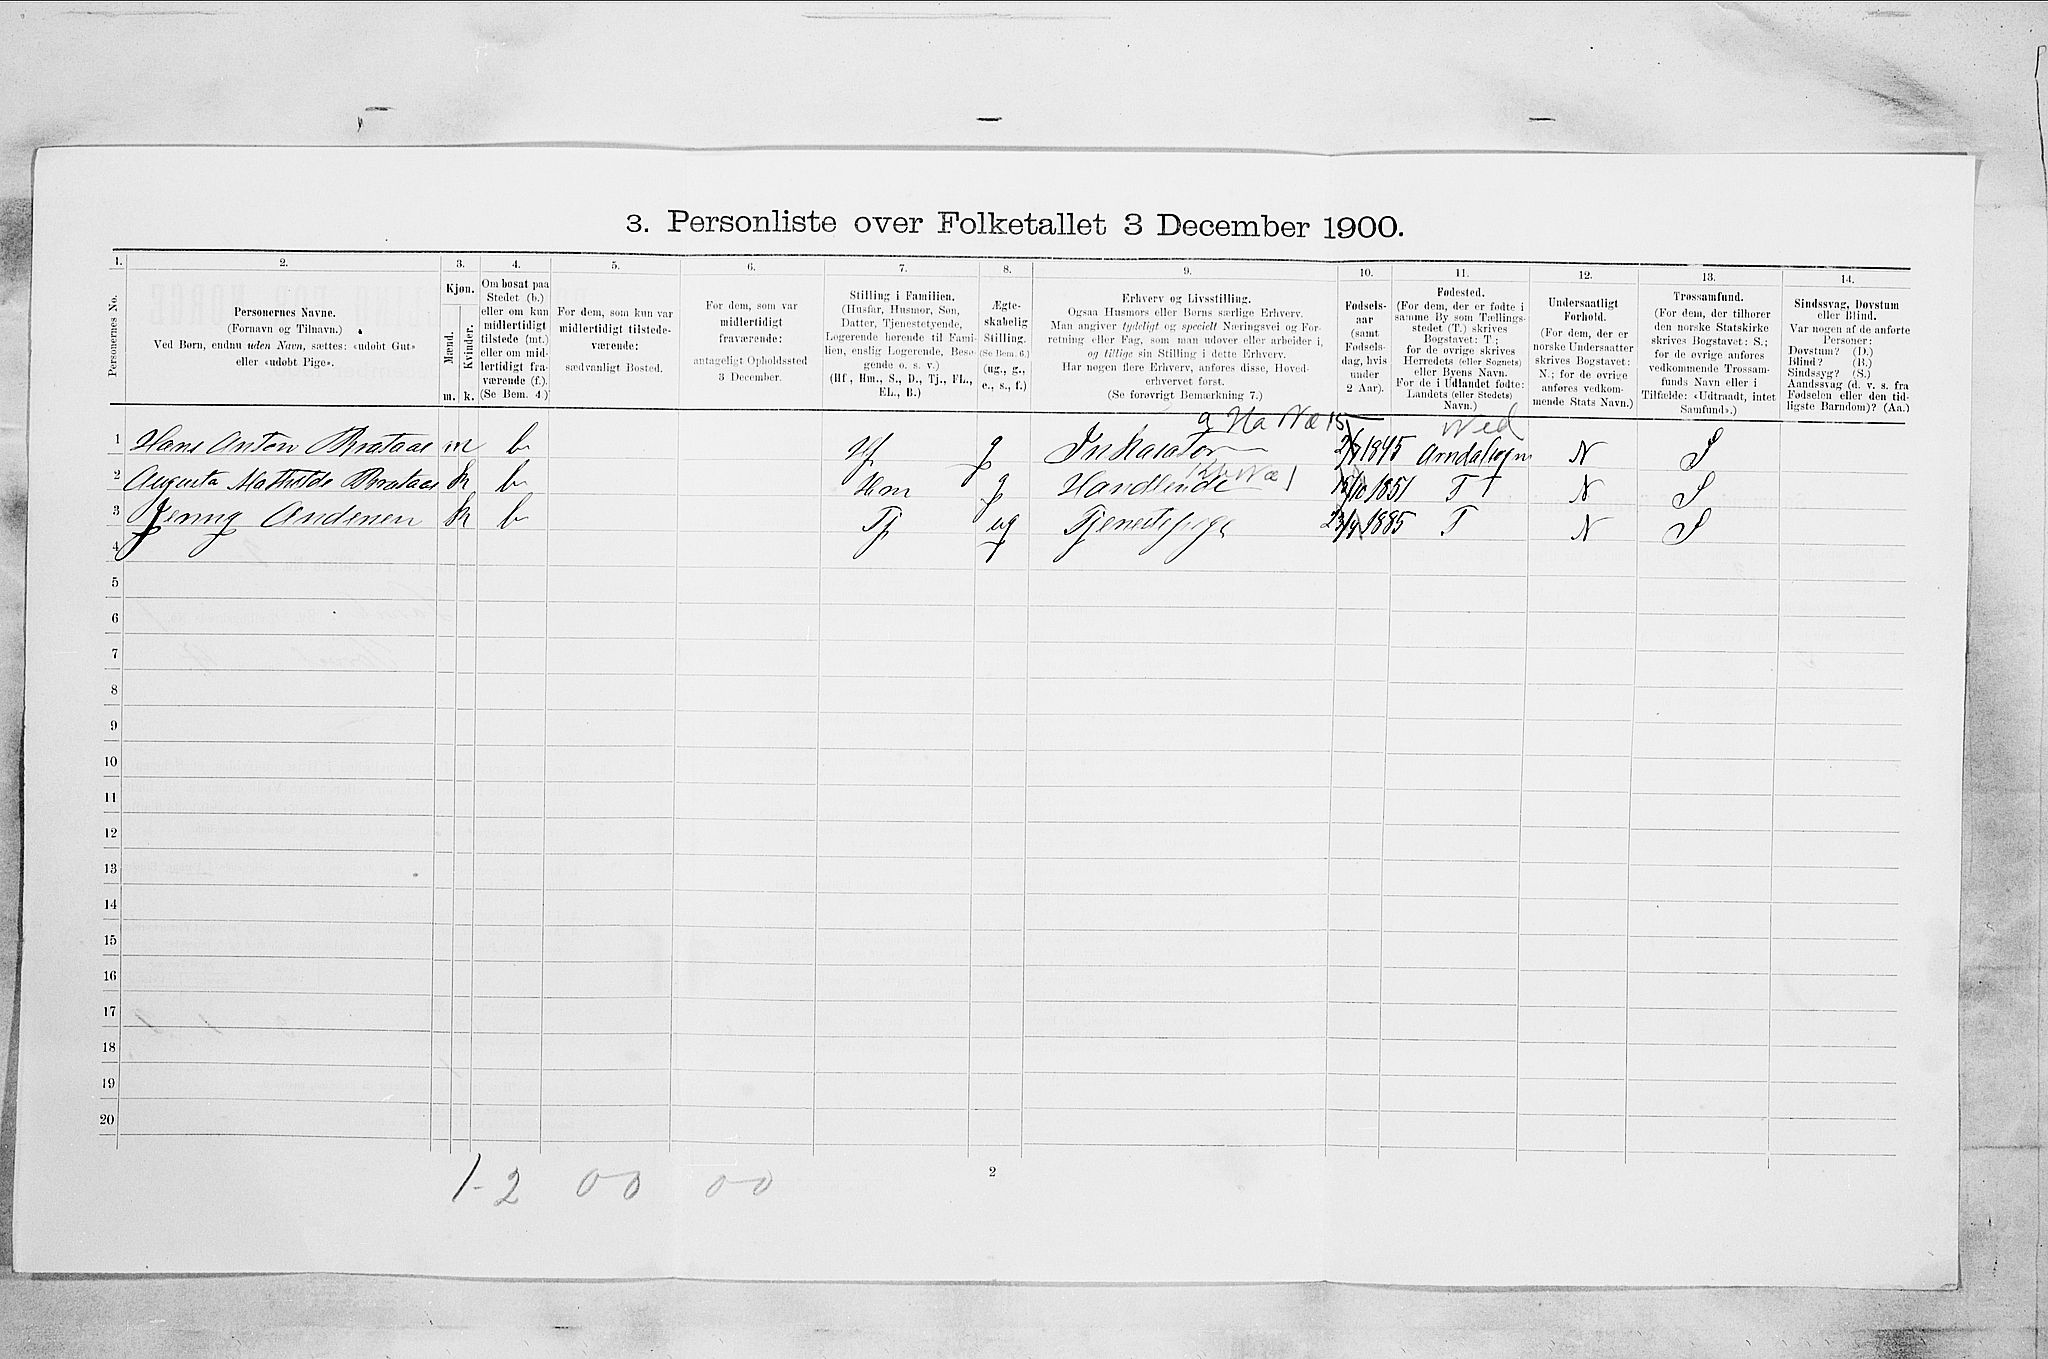 3. Personliste over Folketallet 3 December 1900.
1. 2. 3. 4. 5. 6. 7. 8. 9. 10. 11. 12. 13. 14.
Personernes No.
Personernes Navne.
(Fornavn og Tilnavn.)
Ved Børn, endnu uden Navn, sættes: «udøbt Gut»
eller «udøbt Pige».
Kjøn.
Mænd.
Kvinder.
m. k.
Om bosat paa
Stedet (b.)
eller om kun
midlertidigt
tilstede (mt.)
eller om mid-
lertidigt fra-
værende (f.).
(Se Bem. 4.)
For dem, som kun var
midlertidigt tilstede-
værende:
sædvanligt Bosted.
For dem, som var
midlertidigt
fraværende:
antageligt Opholdssted
3 December.
Stilling i Familien.
(Husfar, Husmor, Søn,
Datter, Tjenestetyende,
Logerende hørende til Fami-
lien, enslig Logerende, Besø-
gende o. s. v.)
(Hf., Hm., S., D., Tj., FL.,
EL., B.)
Ægte-
skabelig
Stilling.
(Se Bem. 6.)
(ug., g.,
e., s., f.)
Erhverv og Livsstilling.
Ogsaa Husmors eller Børns særlige Erhverv.
Man angiver tydeligt og specielt Næringsvei og For-
retning eller Fag, som man udøver eller arbeider i,
og tillige sin Stilling i dette Erhverv.
Har nogen flere Erhverv, anføres disse, Hoved-
erhvervet først.
(Se forøvrigt Bemærkning 7.)
Fødsels-
aar
(samt
Fødsels-
dag, hvis
under
2 Aar).
Fødested.
(For dem, der er fødte i
samme By som Tællings-
stedet (T.) skrives
Bogstavet: T.;
for de øvrige skrives
Herredets (eller Sognets)
eller Byens Navn.
For de i Udlandet fødte:
Landets (eller Stedets)
Navn.)
Undersaatligt
Forhold.
(For dem, der er
norske Undersaatter
skrives Bogstavet:
N.; for de øvrige
anføres vedkom-
mende Stats Navn.)
Trossamfund.
(For dem, der tilhører
den norske Statskirke
skrives Bogstavet: S.;
for de øvrige anføres
vedkommende Trossam-
funds Navn eller i
Tilfælde: «Udtraadt, intet
Samfund».)
Sindssvag, Døvstum
eller Blind.
Var nogen af de anførte
Personer:
Døvstum? (D.)
Blind? (B.)
Sindssyg? (S.)
Aandssvag (d. v. s. fra
Fødselen eller den tid-
ligste Barndom)? (Aa.)
1 Hans Anton Brataas m b Hf g Inkasator 1845 N S
2 Augusta Mathilde Brataas k b Hm g Handlende 15/10 1851 T N S
3 Jenny Andersen k b Tj ug Tjenestepige 1885 T N S
4
5
6
7
8
9
10
11
12
13
14
15
16
17
18
19
20
1-2 0-0 0-0
2